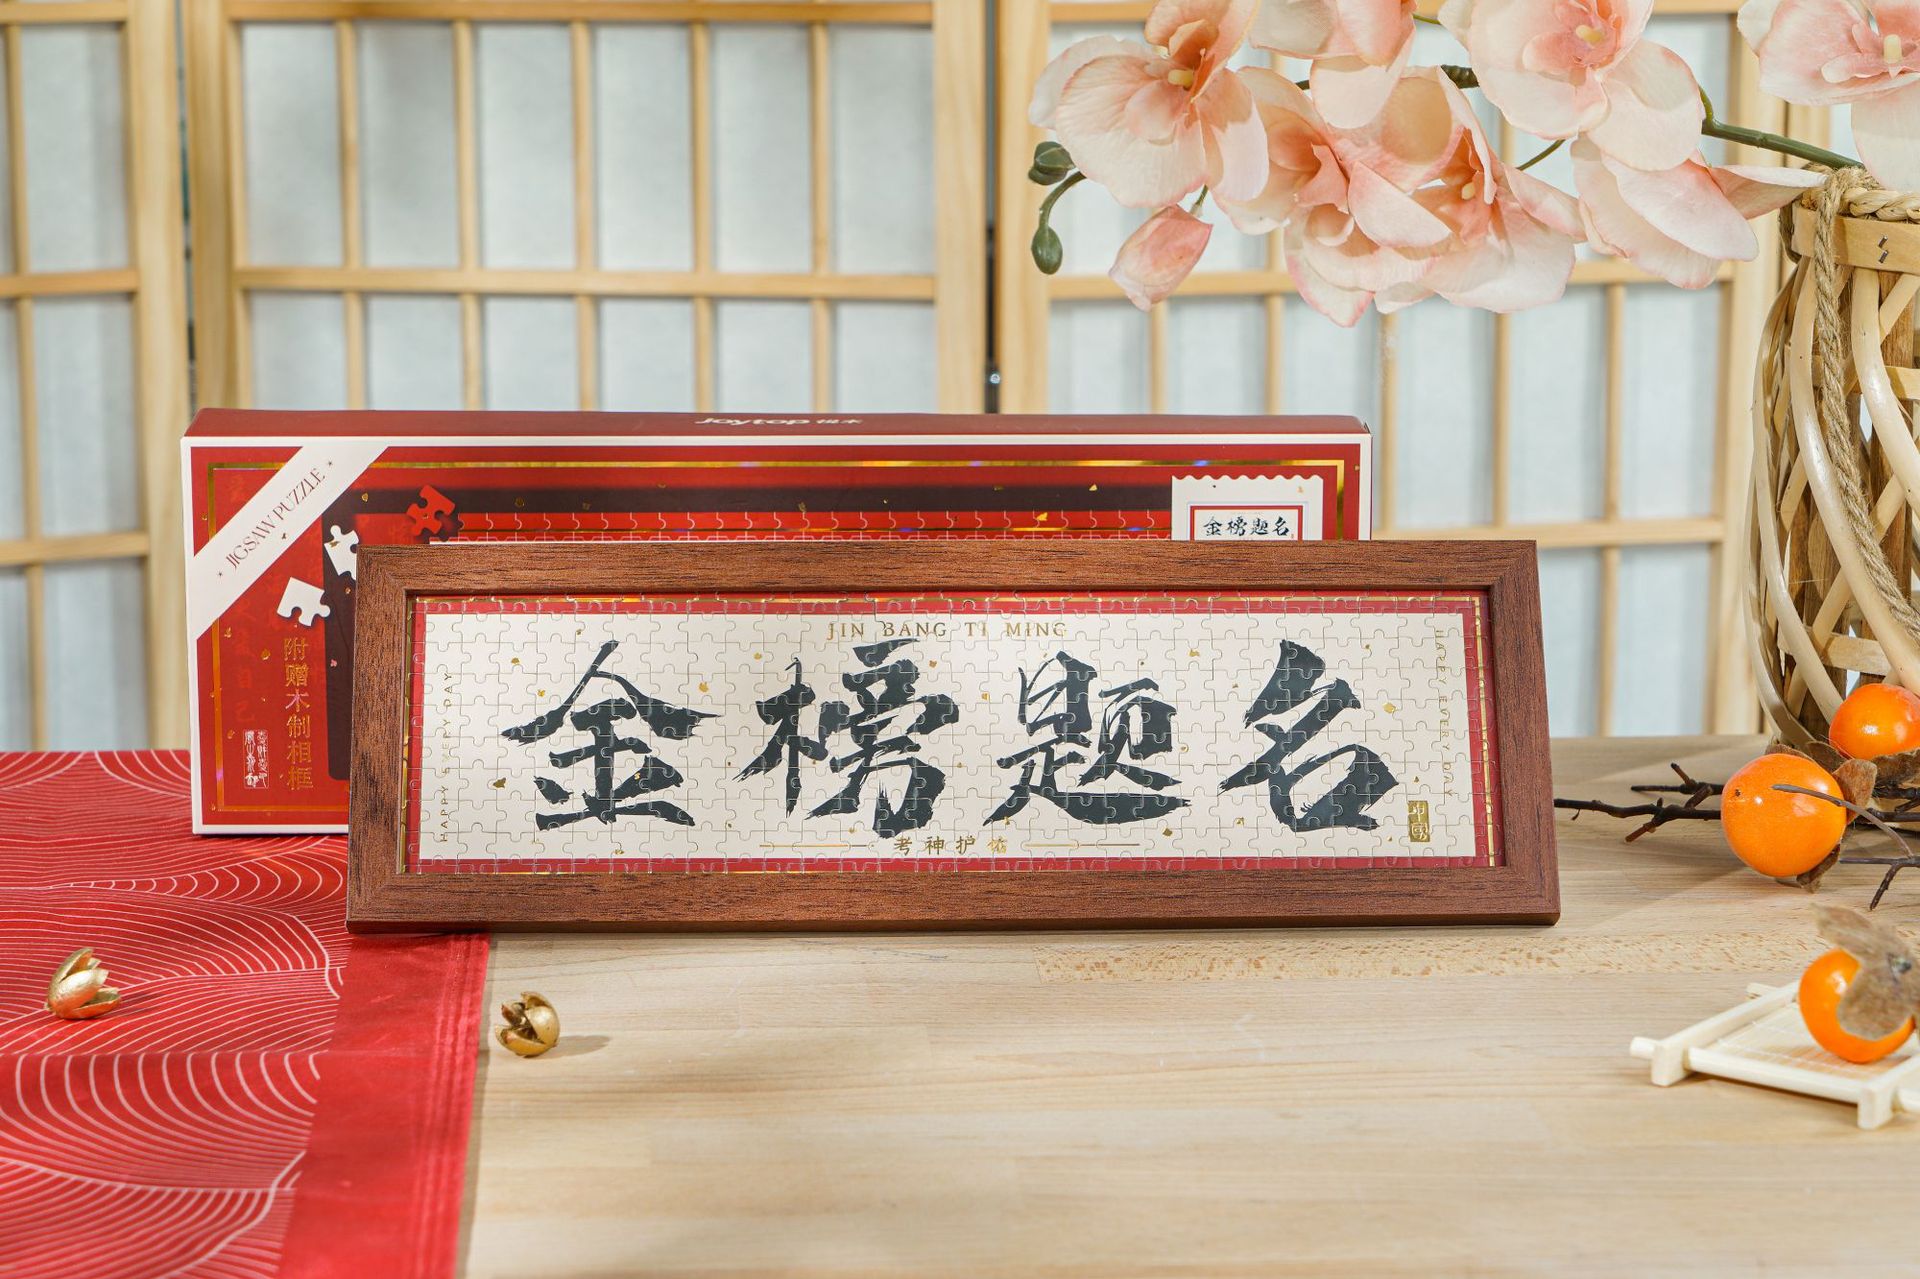 Joytop
JIGSAW PUZZLE
金榜题名
附赠木制相框
JIN BANG TI MING
金榜题名
HAPPY EVERY DAY
HAPPY EVERY DAY
考神护佑